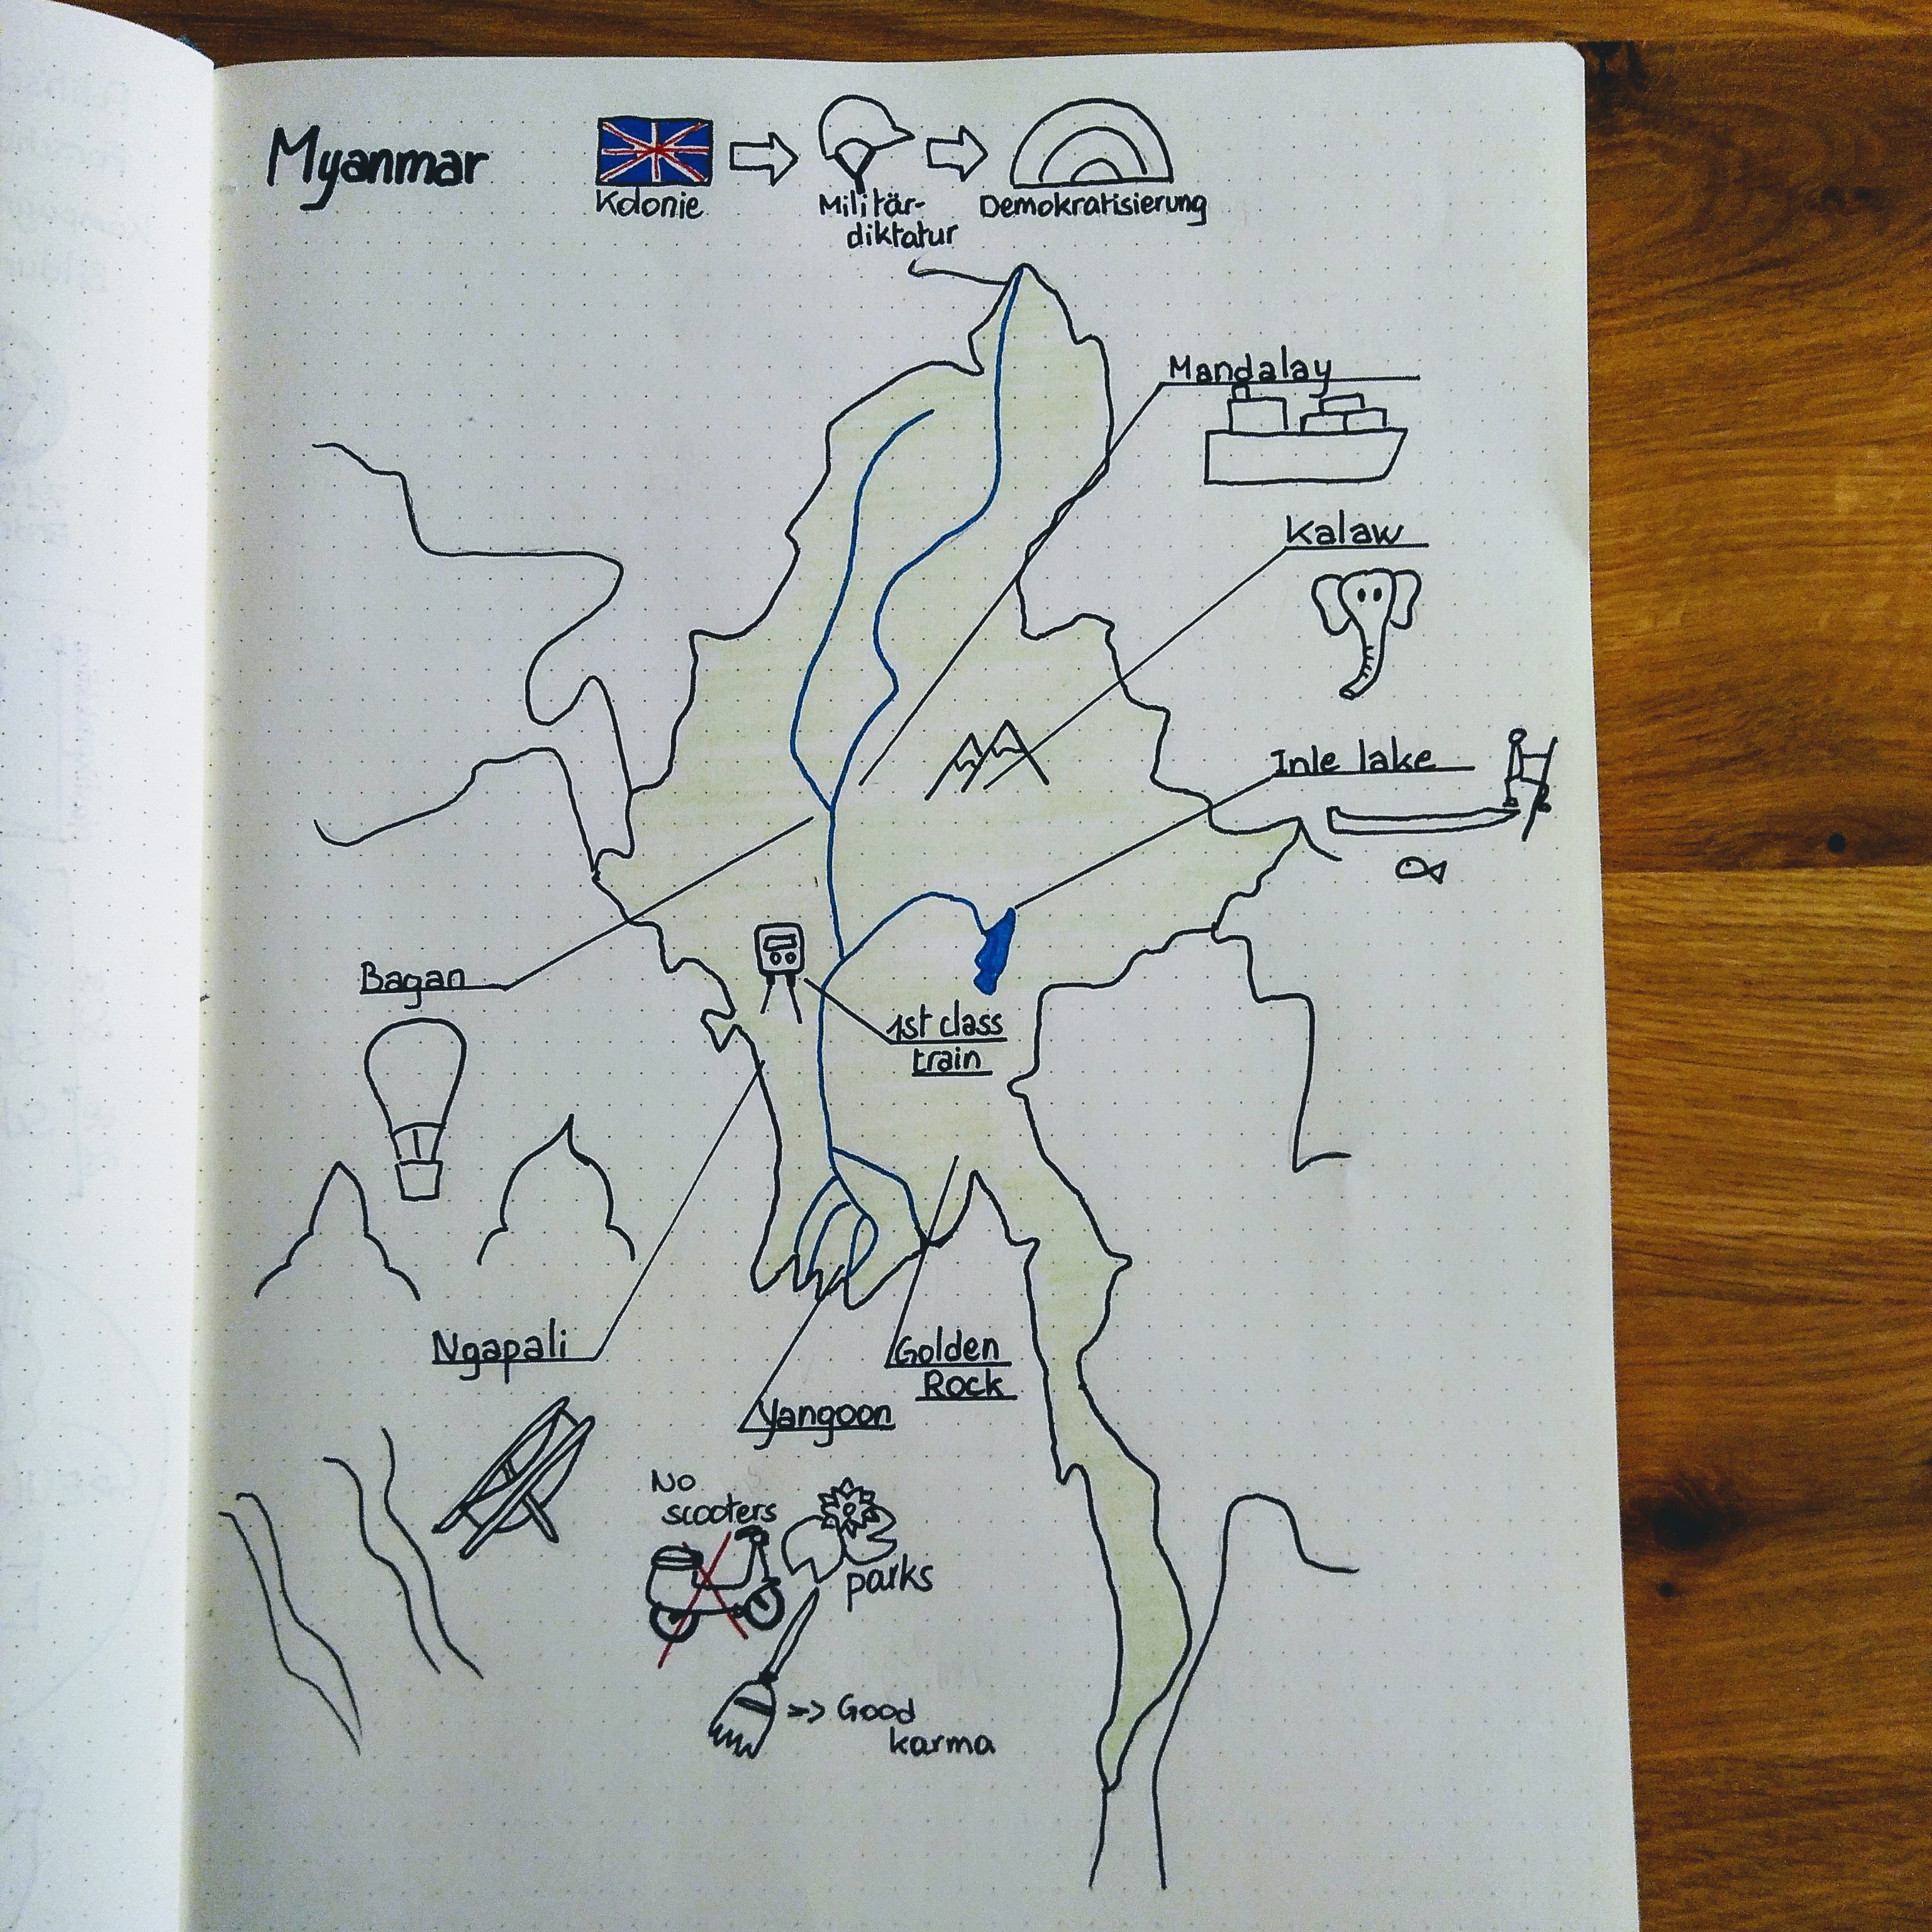 Myanmar
Kolonie
Militär-
diktatur
Demokratisierung
Mandalay
Kalaw
Inle lake
Bagan
1st class
train
Ngapali
Golden
Rock
Yangoon
No
scooters
parks
=> Good
karma